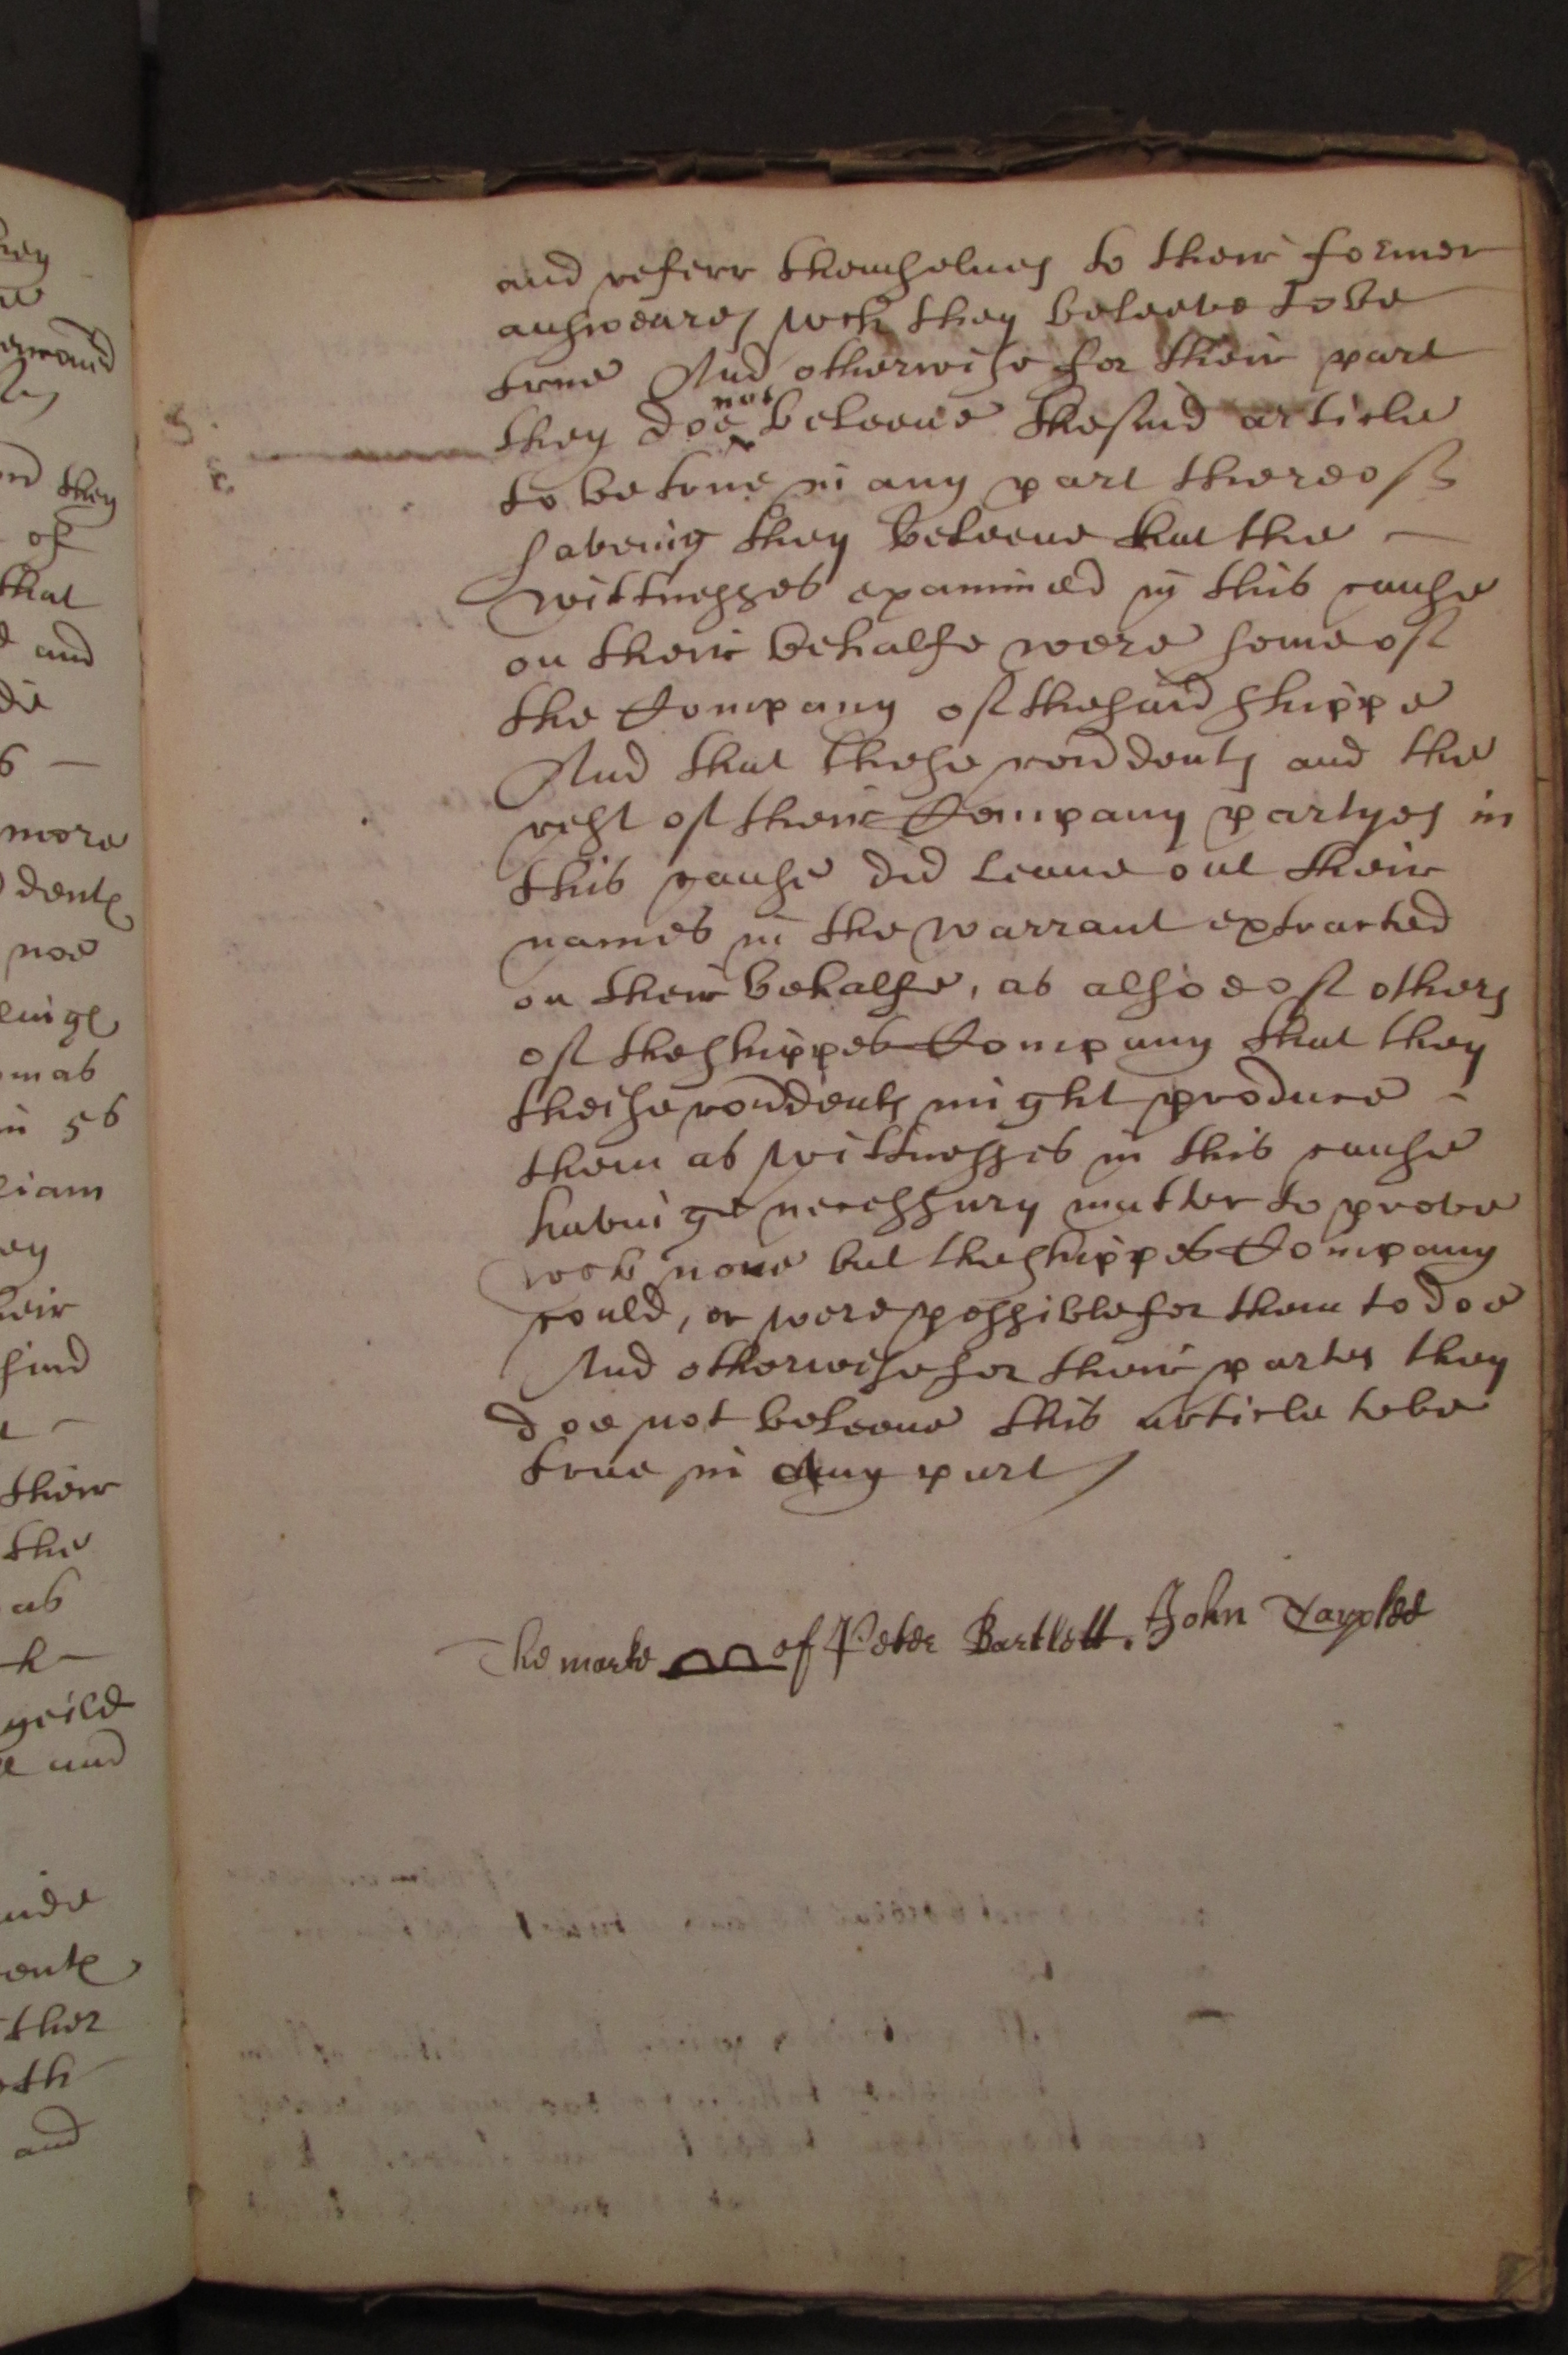 and referr themselues to their former
answeares wch they beleeve to be
true And otherwise for their part
they doe not beleeue the said article
to be true in any part thereof
saveing they beleeue that the
wittnesses examined in this cause
on their behalfe were some of
the Company of the said shippe
And that these rondents and the
rest of their Company partyes in
this cause did leaue out their
names in the warrant extracted
on their behalfe, as alsoe of others
of the shippes Company that they
theise rondents might produce
them as wittnesses in this cause
haveinge necessary matter to prove
wch none but the shippes Company
could, or were possible for them to doe
And otherwise for their partes they
doe not beleeue this article to be
true in any part
The marke of Peter Bartlett. John
hey
and
they
of
that
and
more
dent
noe
mas
in 56
liam
ey
heir
their
the
as
geild
and
ther
oth
and